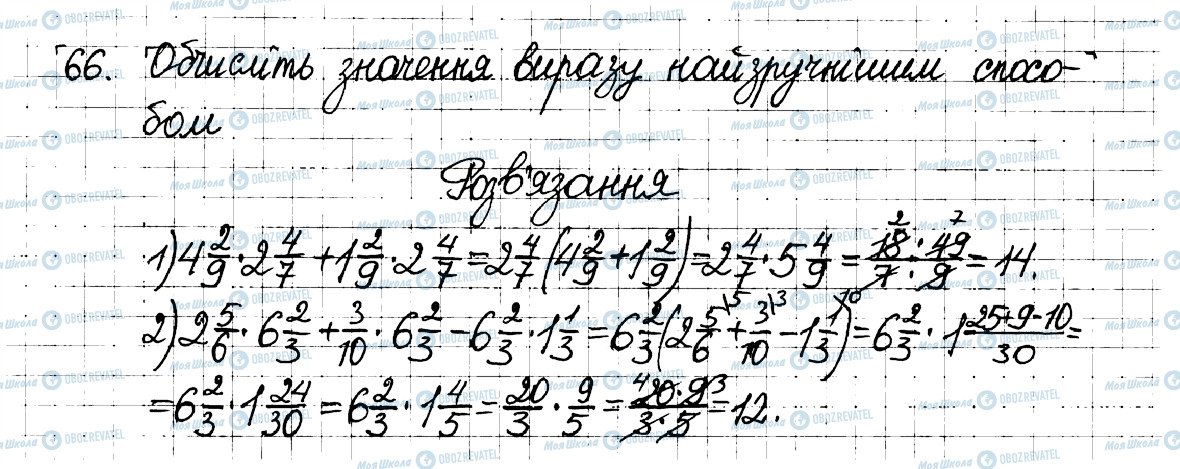 66. Обчисліть значення виразу найзручнішим спосо-
бом
Розв'язання
1) 4 2/9 · 2 4/7 + 1 2/9 · 2 4/7 = 2 4/7 (4 2/9 + 1 2/9) = 2 4/7 · 5 4/9 = (18 · 49)/(7 · 9) = 14.
2) 2 5/6 · 6 2/3 + 3/10 · 6 2/3 − 6 2/3 · 1 1/3 = 6 2/3 (2 5/6 + 3/10 − 1 1/3) = 6 2/3 · 1 (25+9−10)/30 =
= 6 2/3 · 1 24/30 = 6 2/3 · 1 4/5 = 20/3 · 9/5 = (20 · 9)/(3 · 5) = 12.